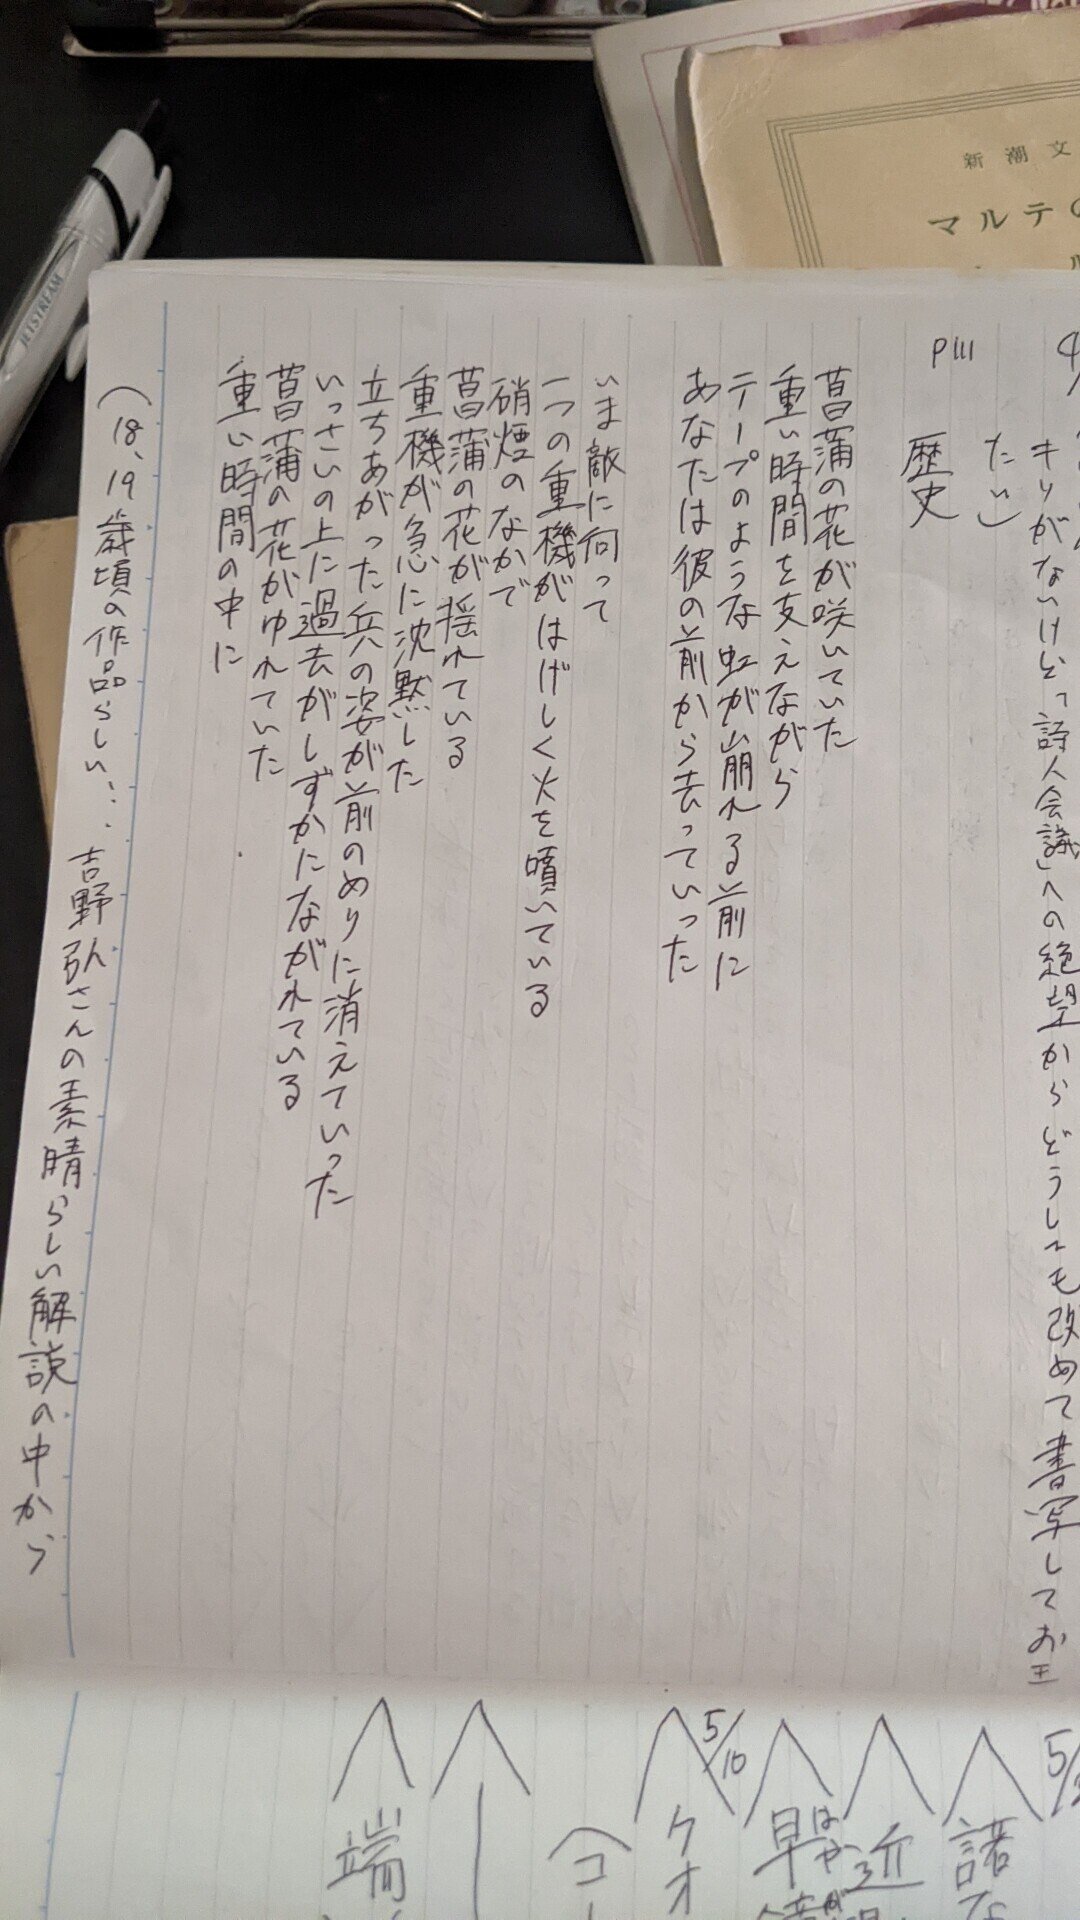 新潮文
マルテの
JETSTREAM
キリがないけど「詩人会議」への絶望からどうしても改めて書写しておき
たい)
P111
歴史
菖蒲の花が咲いていた
重い時間を支えながら
テープのような虹が崩れる前に
あなたは彼の前から去っていった
いま敵に向って
一つの重機がはげしく火を噴いている
硝煙のなかで
菖蒲の花が揺れている
重機が急に沈黙した
立ちあがった兵の姿が前のめりに消えていった
いっさいの上に過去がしずかにながれている
菖蒲の花がゆれていた
重い時間の中に
(18、19歳頃の作品らしい… 吉野弘さんの素晴らしい解説の中から
5/10
諸な
近
早
はやが
クオ
コー
端